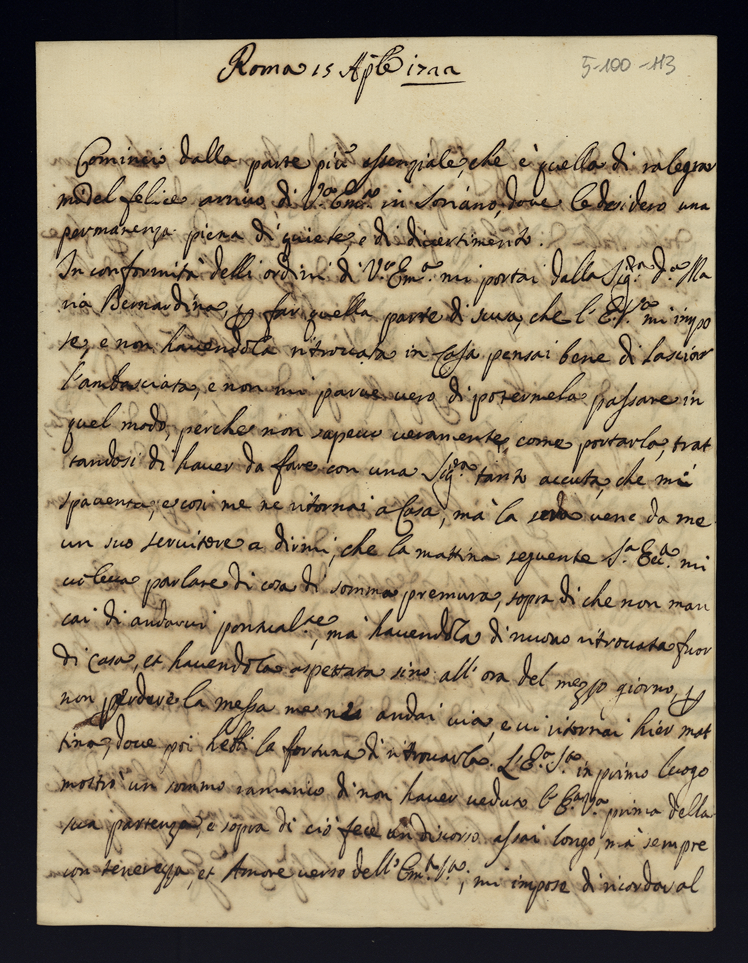 Roma 15 Ap.le 1722
5-100-113
Comincio dalla parte più essenziale, che è quella di ralegrar
mi del felice arrivo di V.ra Em.a in Soriano, dove le desidero una
permanenza piena di quiete, e di divertimento.
In conformità delli ordini di V.ra Em.a mi portai dalla Sig.ra D.a Ma
ria Bernardina per far quella parte di scusa, che l'E.V.ra mi impo
se, e non havendola ritrovata in Casa pensai bene di lasciar
l'ambasciata, e non mi parve vero di potermela passare in
quel modo, perche non sapevo veramente, come portarla, trat
tandosi di haver da fare con una Sig.ra tanto accuta, che mi
spaventa, e così me ne ritornai a Casa, mà la sera vene da me
un suo servitore a dirmi, che la mattina seguente S.a Ecc.a mi
voleva parlare di cosa di somma premura, sopra di che non man
cai di andarvi pontual.te, mà havendola di nuovo ritrovata fuor
di Casa, et havendola aspettata sino all'ora del mezzo giorno, per
non perdere la messa me ne andai via, e vi ritornai hier mat
tina, dove poi hebbi la fortuna di ritrovarla. L'E.a S.a in primo luogo
mostrò un sommo ramarico di non haver veduto l'E.a V.ra prima della
sua partenza, e sopra di ciò fece un discorso assai longo, mà sempre
con tenerezza, et Amore verso dell'Em.a S.a, mi impose di ricordar al